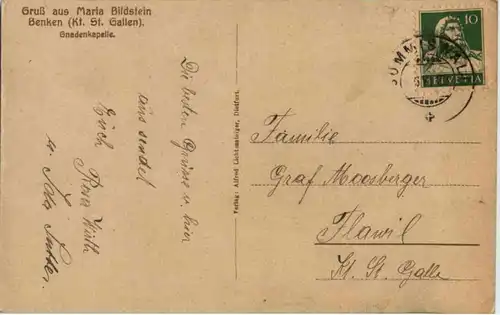 Gruß aus Maria Bildstein
Benken (Kt. St. Gallen).
Gnadenkapelle.
Die besten Grüsse v. hier
aus sendet
Euch Rosa Wirth
u. Ida
Verlag: Alfred Lichtensteiger, Dietfurt.
10
HELVETIA
Familie
Graf Moosberger
Flawil
Kt. St. Galle